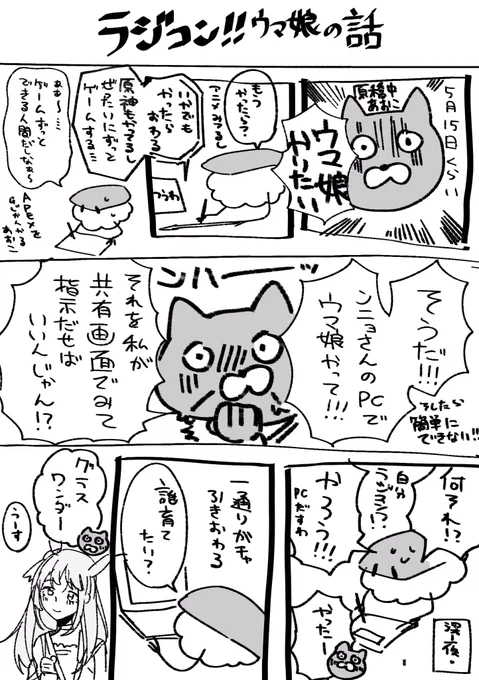 ラジコン!!ウマ娘の話
5月15日くらい
原稿中
あおこ
ウマ娘
かりたい
もう
かったら?
アニメみてるし
いやでも
かったら
おわる
原神もやるし
ぜったいにずっと
ゲームする…
つうわ
あぁ〜…
ゲームずっと
できる人間だしなぁ〜
APEXを
あおこ
そうだ!!!
ンニョさんのPCで
ウマ娘やって!!!
そしたら
簡単に
できない!!
ンハーーッ
それを私が
共有画面でみて
指示だせば
いいんじゃん!?
何それ!?
自分
ラジコン!?
やろう!!!
PCだすわ
やったー
深夜・
一通りガチャ
引きおわる
誰育て
たい?
グラス
ワンダー
うーす